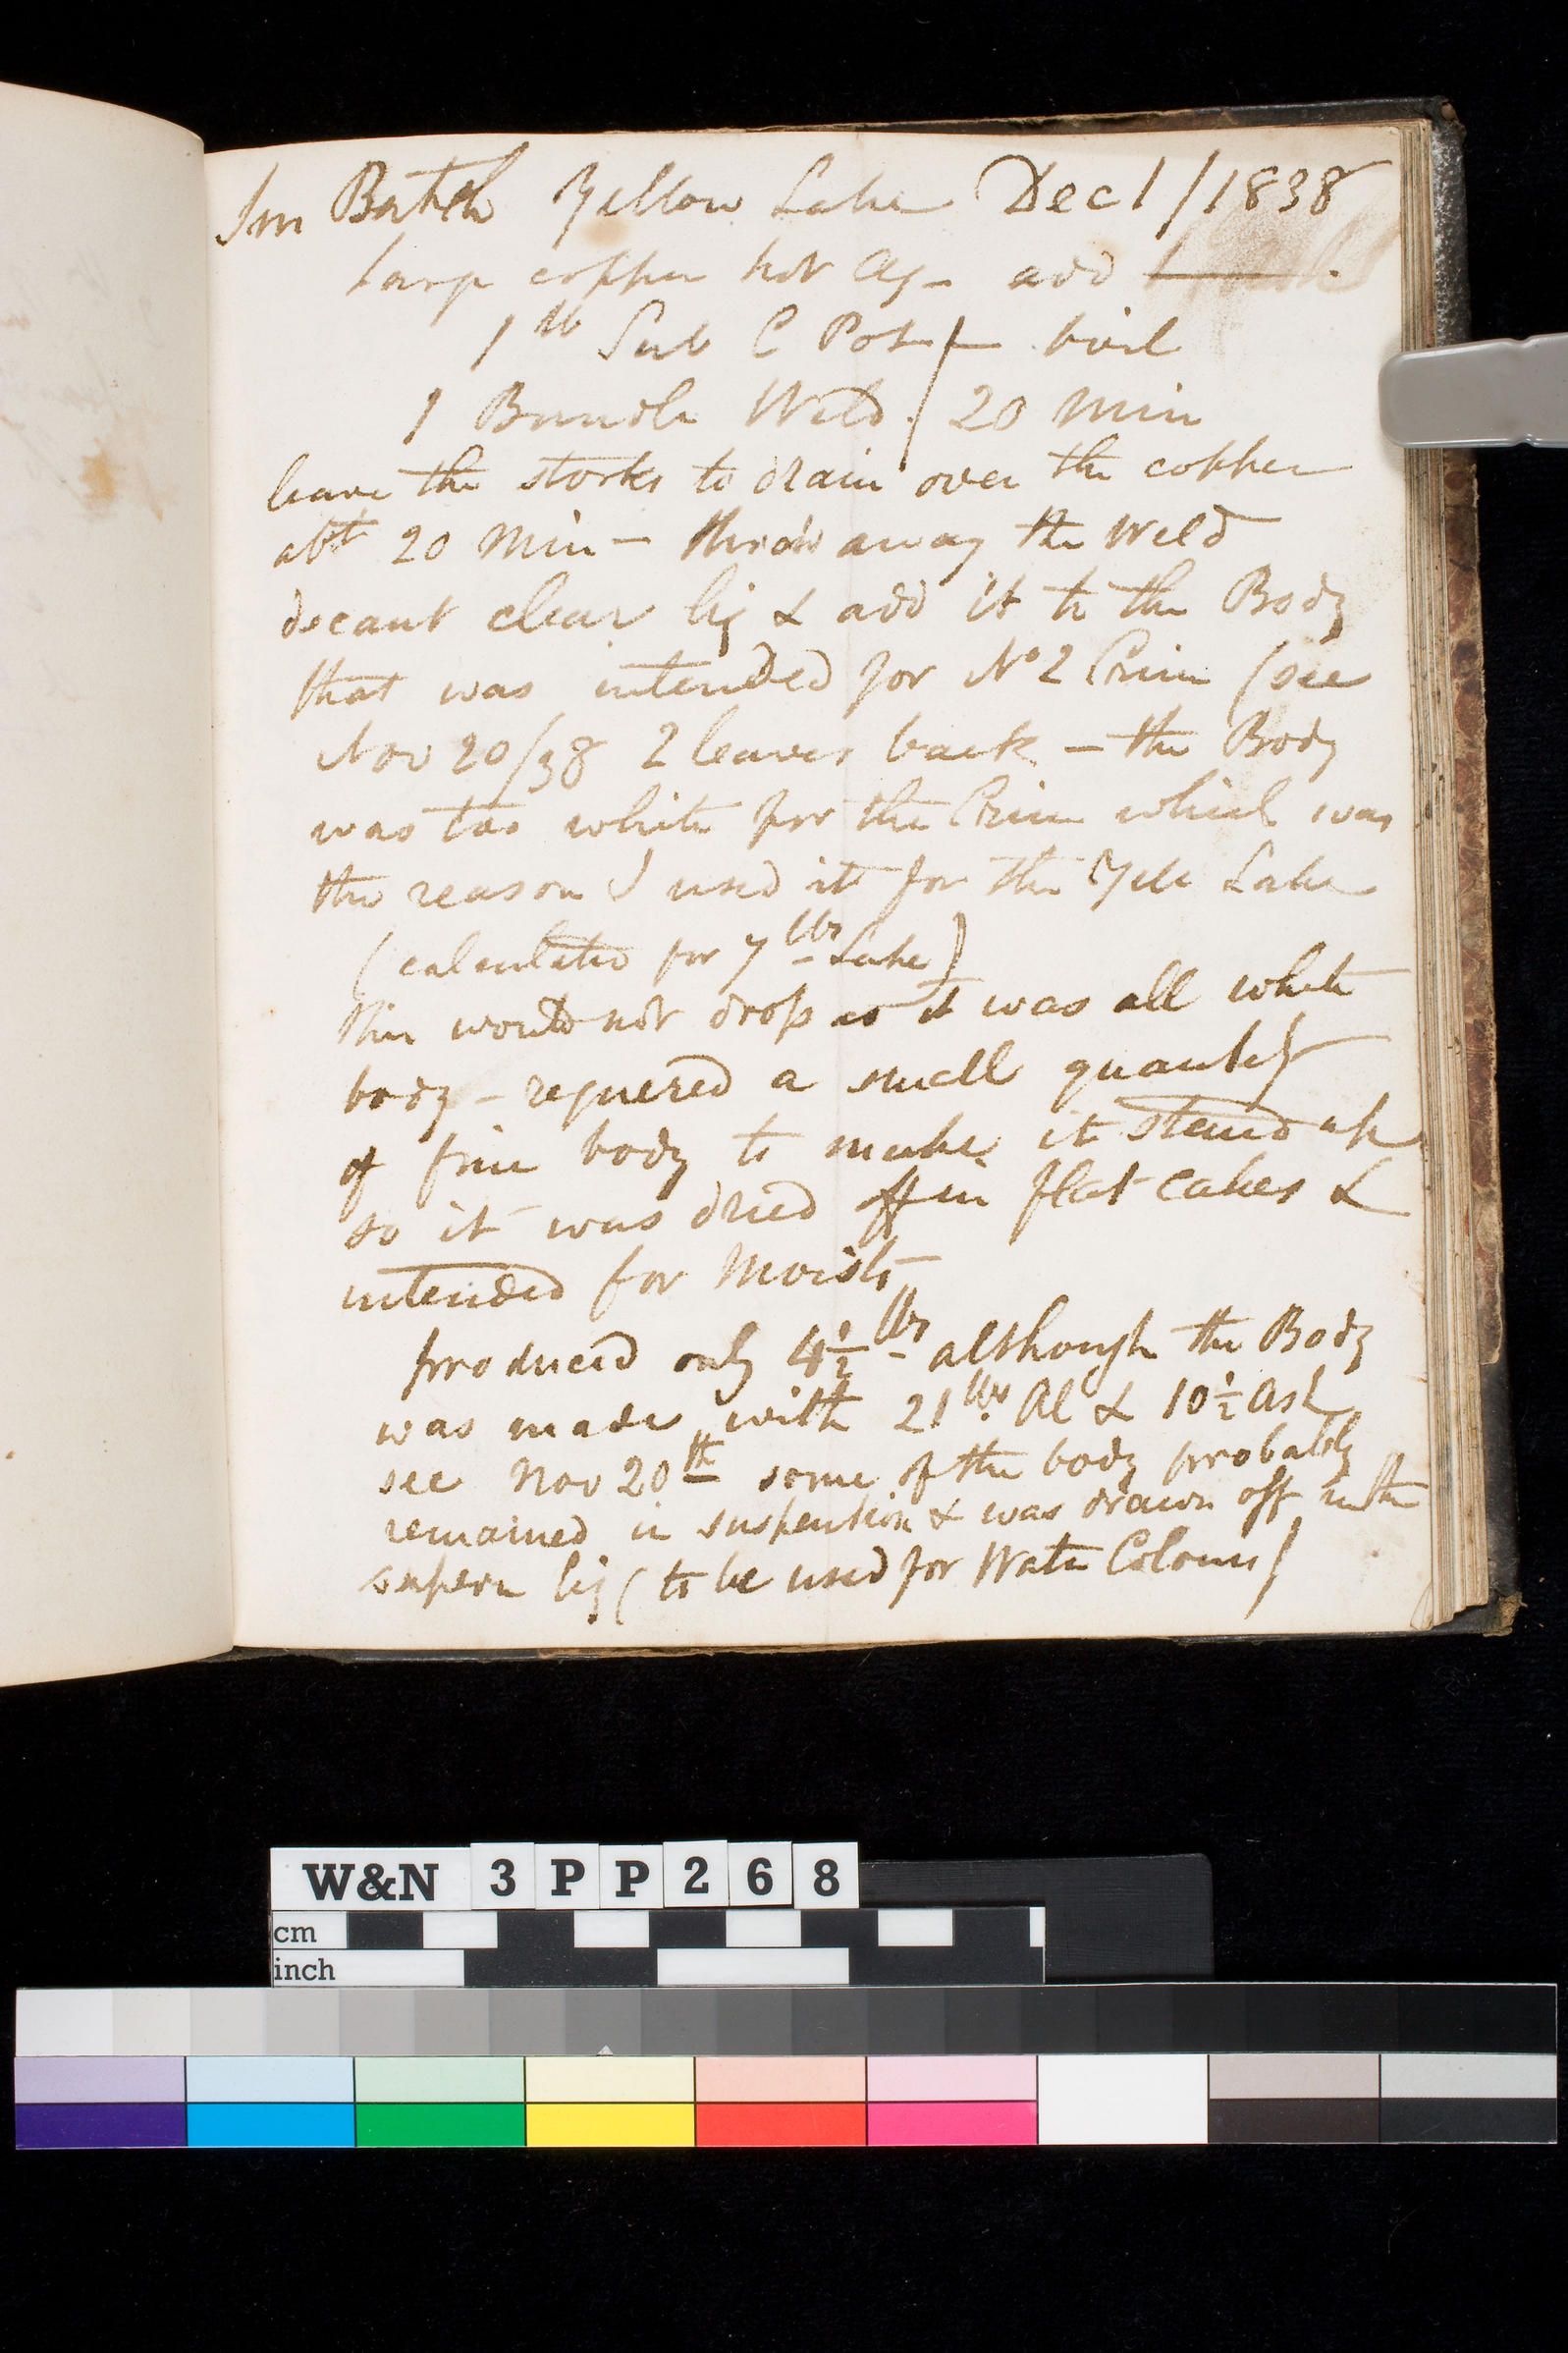 Sm Batch Yellow Lake Dec 1/1838
Large copper hot Aq - add
1 lb Sub C Pot / boil
1 Bundle Weld / 20 Min
leave the storks to drain over the copper
abt 20 Min - throw away the Weld
decant clear liq & add it to the Body
that was intended for No 2 Crim (see
Nov 20/38 2 leaves back - the Body
was too white for the Crim which was
the reason I used it for the Yell Lake
(calculated for 7 lbs Lake)
this would not drop as it was all white
body - requered a small quantity
of firm body to make it stand up
so it was dried off in flat cakes &
intended for Moist
produced only 4½ lbs although the Body
was made with 21 lbs Al & 10½ Ash
see Nov 20th some of the body probably
remained in suspention & was drawn off in the
supern liq (to be used for Water Colours)
W&N 3PP268
cm
inch